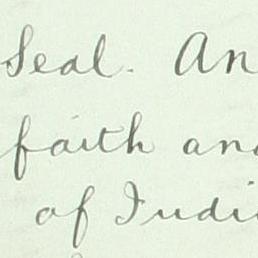 Seal. An
faith and
of Indi